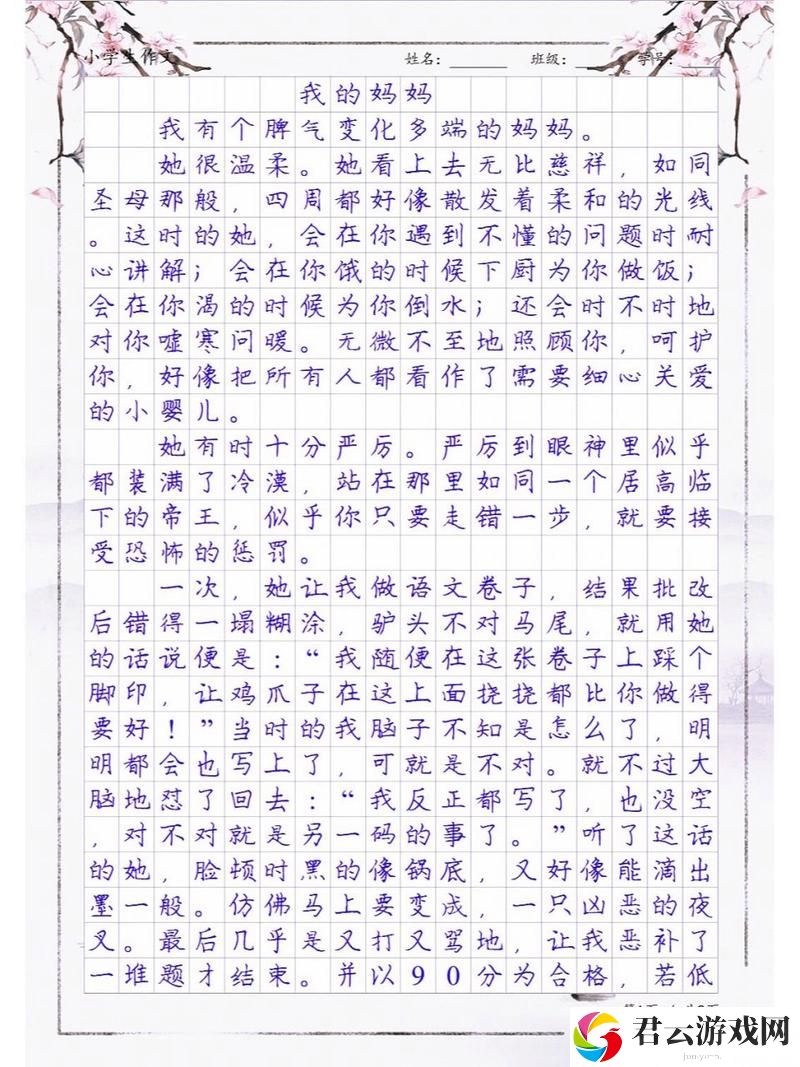 小学生作文 姓名： 班级： 学号：
我的妈妈
我有个脾气变化多端的妈妈。
她很温柔。她看上去无比慈祥，如同
圣母那般，四周都好像散发着柔和的光线
。这时的她，会在你遇到不懂的问题时耐
心讲解；会在你饿的时候下厨为你做饭；
会在你渴的时候为你倒水；还会时不时地
对你嘘寒问暖。无微不至地照顾你，呵护
你，好像把所有人都看作了需要细心关爱
的小婴儿。
她有时十分严厉。严厉到眼神里似乎
都装满了冷漠，站在那里如同一个居高临
下的帝王，似乎你只要走错一步，就要接
受恐怖的惩罚。
一次，她让我做语文卷子，结果批改
后错得一塌糊涂，驴头不对马尾，就用她
的话说便是：“我随便在这张卷子上踩个
脚印，让鸡爪子在这上面挠挠都比你做得
要好！”当时的我脑子不知是怎么了，明
明都会也写上了，可就是不对。就不过大
脑地怼了回去：“我反正都写了，也没空
，对不对就是另一码的事了。”听了这话
的她，脸顿时黑的像锅底，又好像能滴出
墨一般。仿佛马上要变成，一只凶恶的夜
叉。最后几乎是又打又骂地，让我恶补了
一堆题才结束。并以90分为合格，若低
君云游戏网